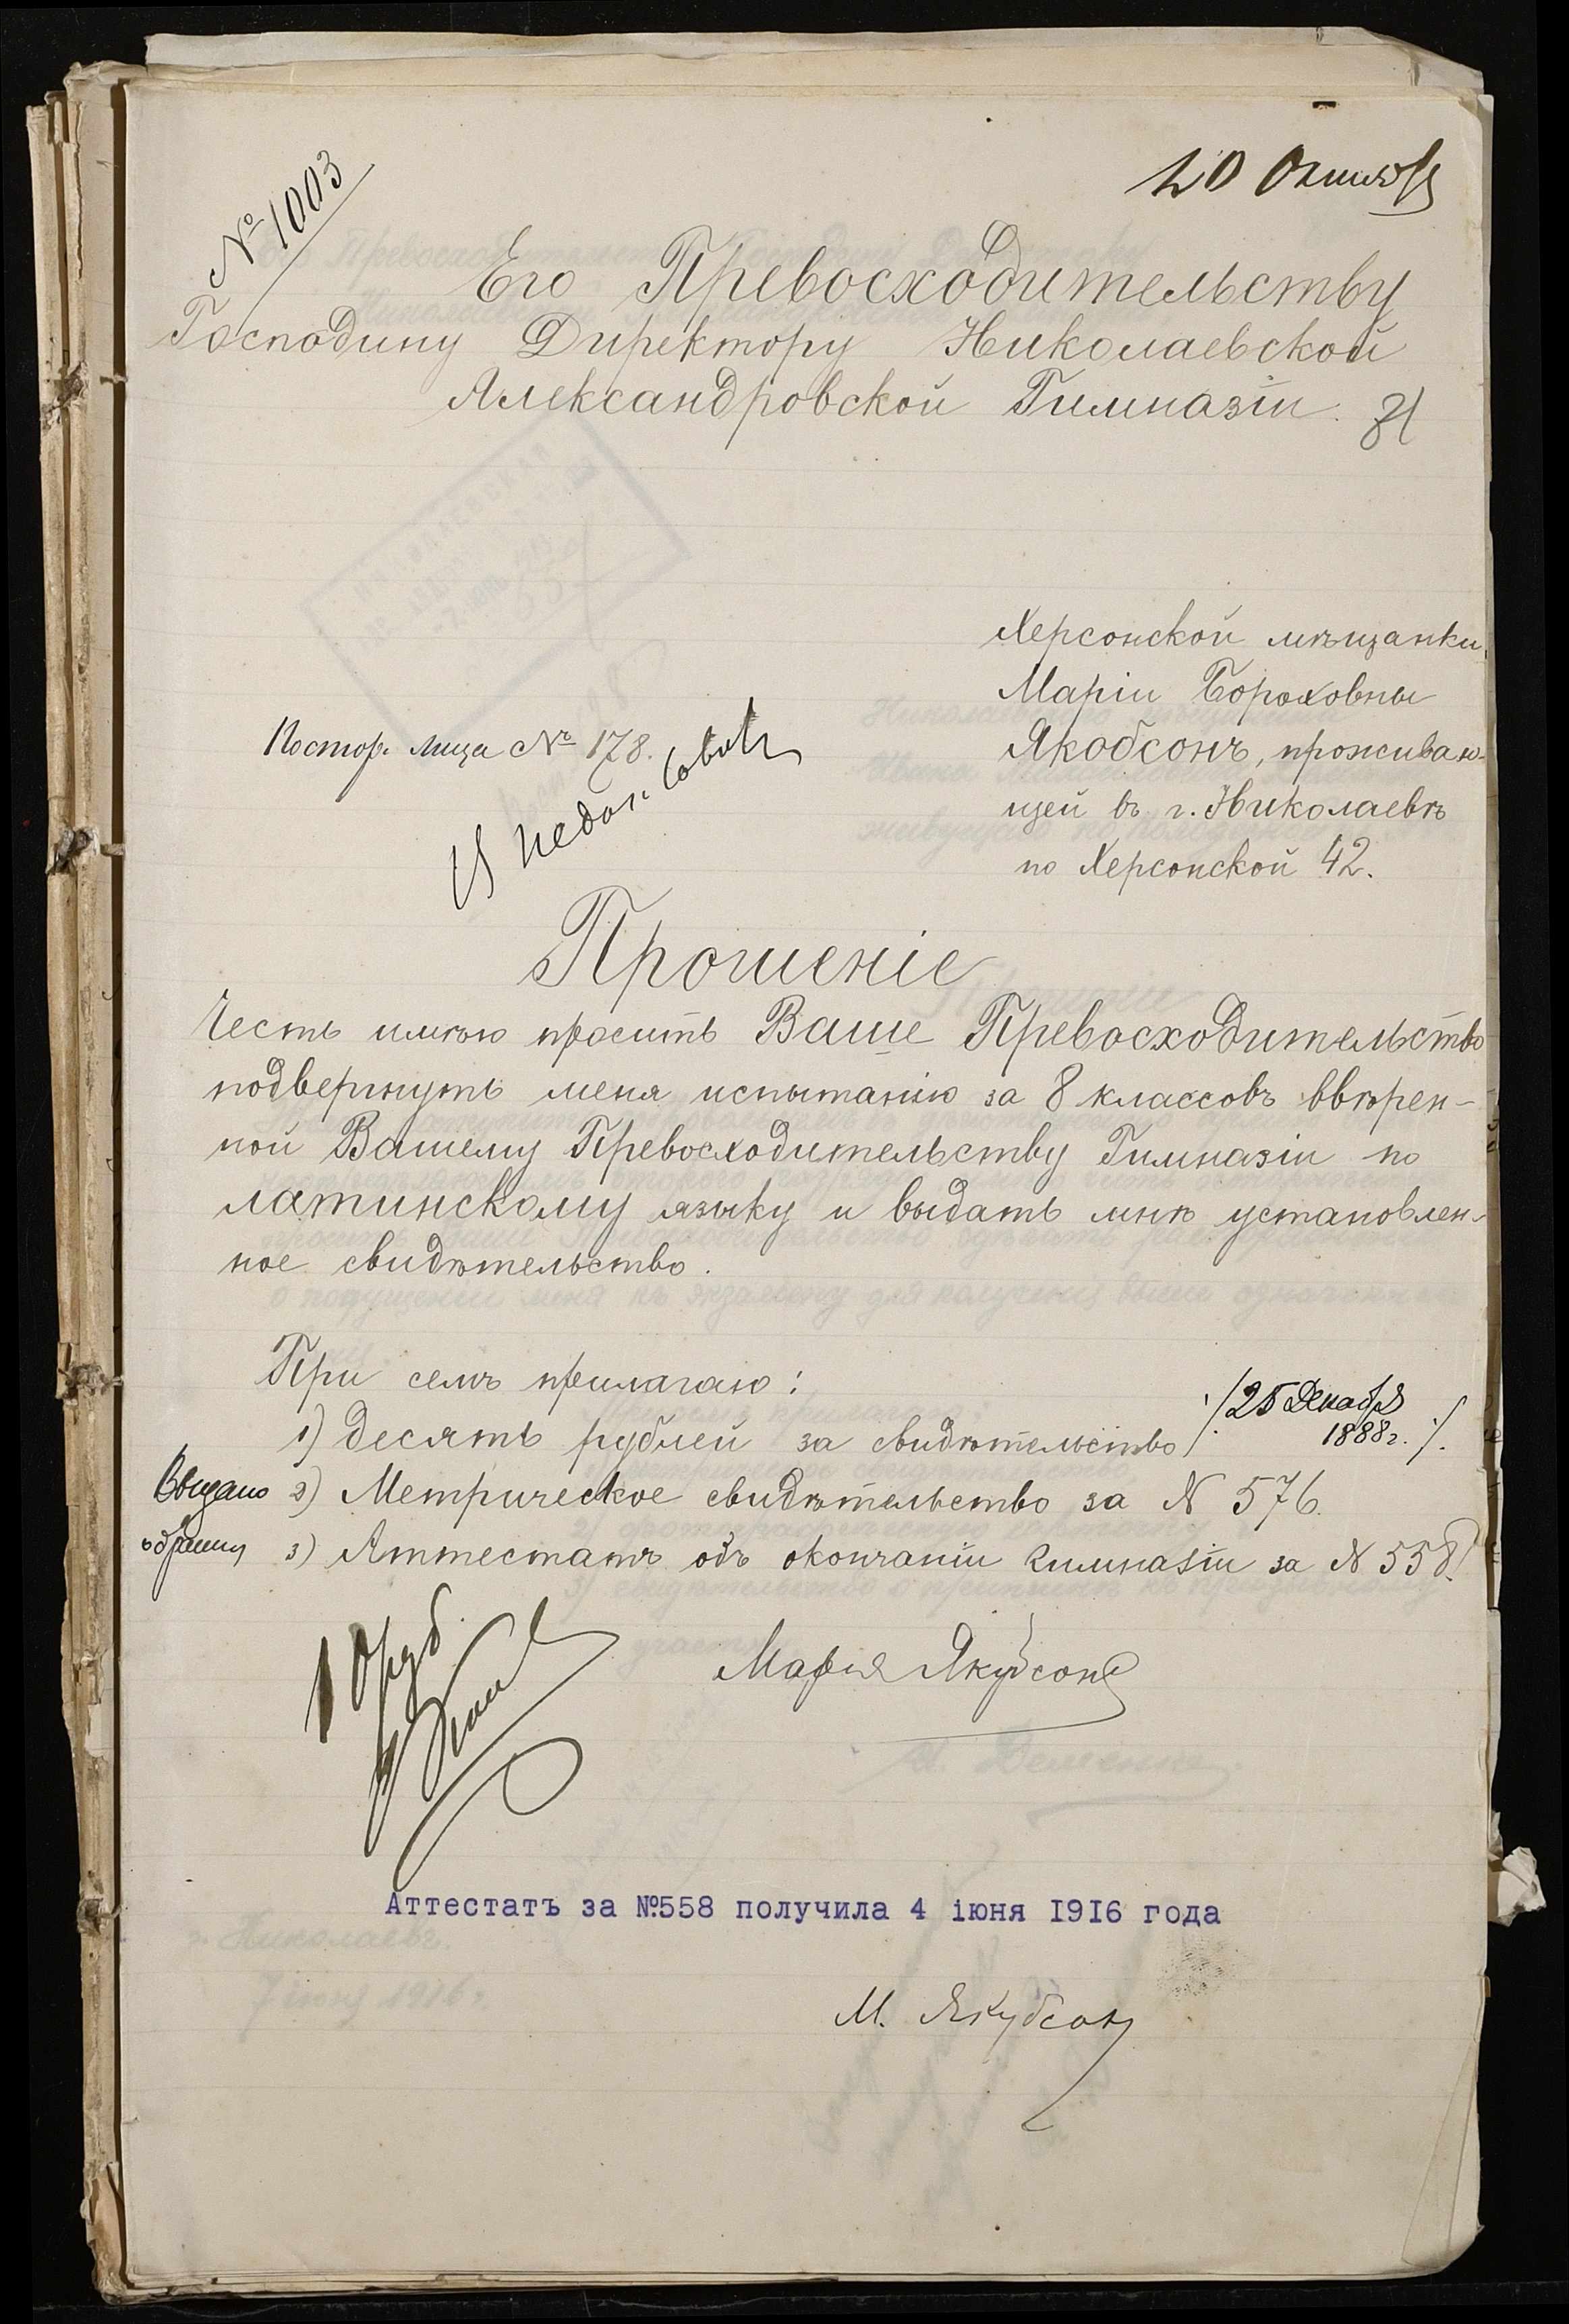 № 1003
20 Октября
Его Превосходительству
Господину Директору Николаевской
Александровской Гимназіи.
Херсонской мѣщанки
Маріи Бороховны
Якобсонъ, проживаю-
щей въ г. Николаевѣ
по Херсонской 42.
Постор. лица № 178.
Прошеніе
Честь имѣю просить Ваше Превосходительство
подвергнуть меня испытанію за 8 классовъ ввѣрен-
ной Вашему Превосходительству Гимназіи по
латинскому языку и выдать мнѣ установлен-
ное свидѣтельство.
При семъ прилагаю:
1) десять рублей за свидѣтельство
/25 Декабря
1888 г./.
2) Метрическое свидѣтельство за N 576.
3) Аттестатъ объ окончаніи гимназіи за N 558.
10 руб.
Марія Якубсонъ
Аттестатъ за №558 получила 4 іюня 1916 года
М. Якубсон